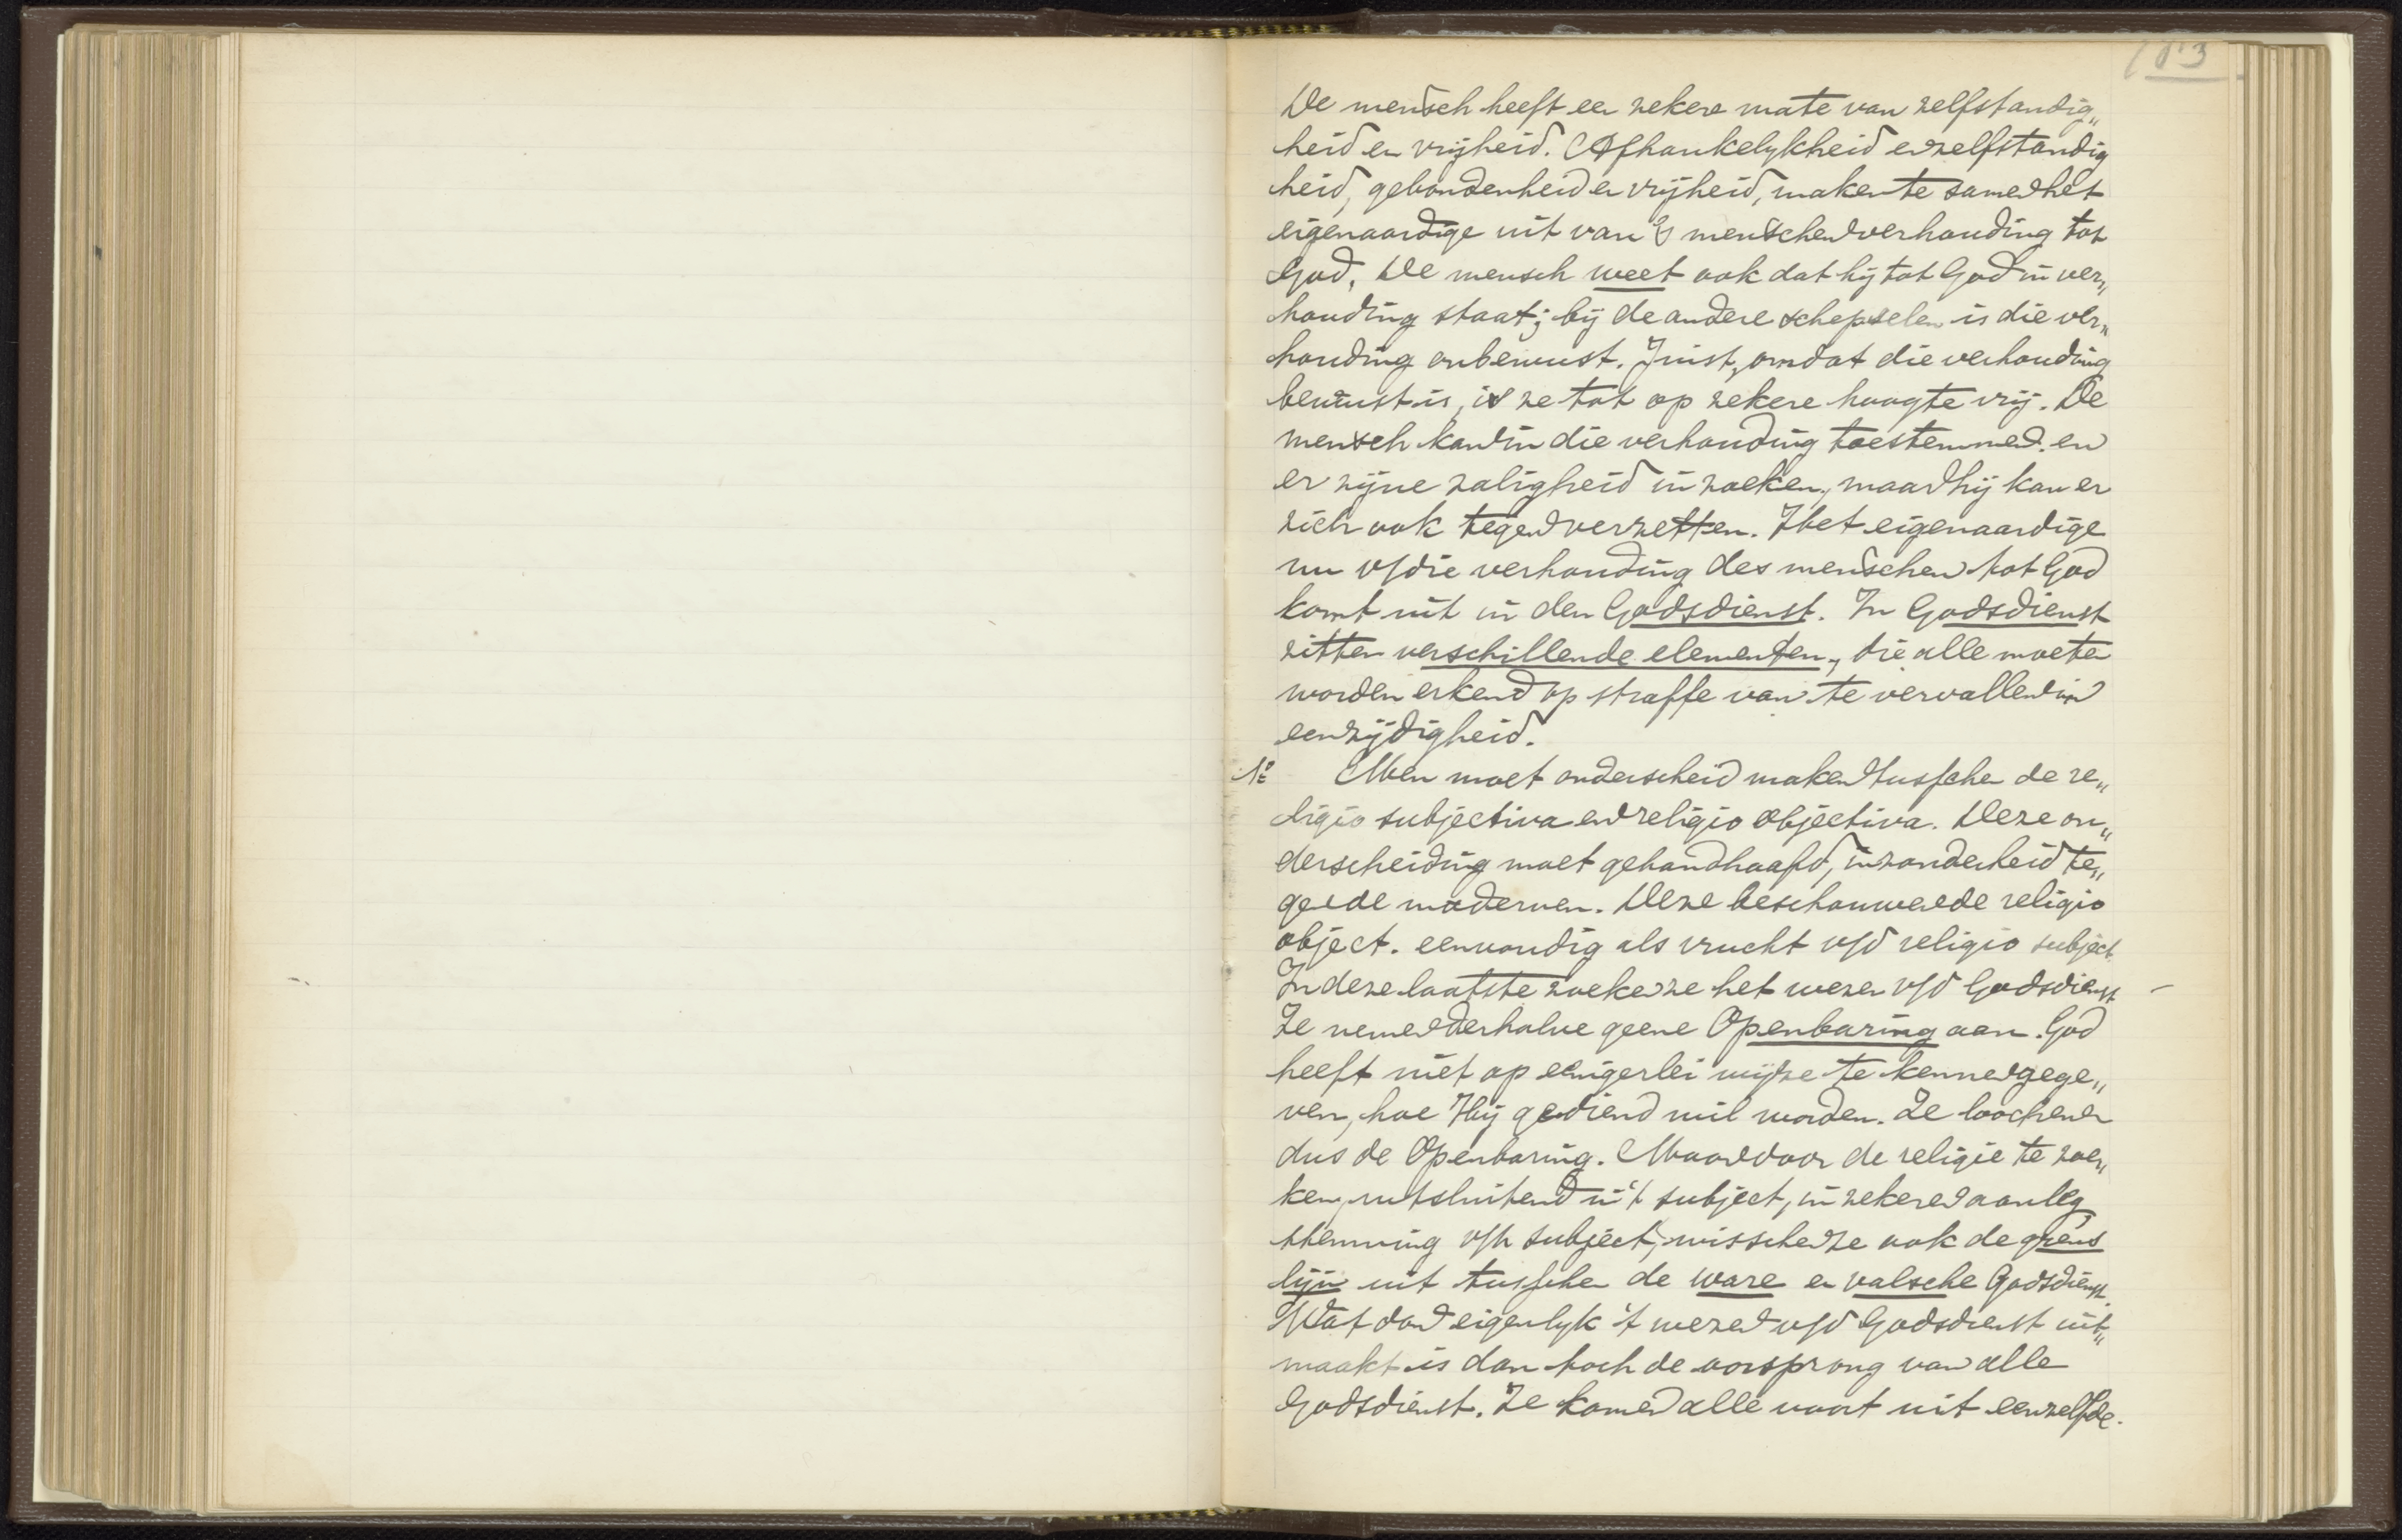 183
De mensch heeft een zekere mate van zelfstandig„
heid en vrijheid. Afhankelykheid en zelfstandig
heid, gebondenheid en vrijheid, maken te samen het
eigenaardige uit van 's menschen verhouding tot
God. De mensch weet ook dat hij tot God in ver„
houding staat; bij de andere schepselen is die ver„
houding onbewust. Juist, omdat die verhouding
bewust is, is ze tot op zekere hoogte vrij. De
mensch kan in die verhouding toestemmen en
er zijne zaligheid in zoeken, maar hij kan er
zich ook tegen verzetten. Het eigenaardige
nu v/die verhouding des menschen tot God
komt uit in den Godsdienst. In Godsdienst
zitten verschillende elementen, die alle moeten
worden erkend op straffe van te vervallen in
eenzijdigheid.
1º Men moet onderscheid maken tusschen de re„
ligio subjectiva en religio objectiva. Deze on„
derscheiding moet gehandhaafd, inzonderheid te„
gen de modernen. Deze beschouwen de religio
object. eenvoudig als vrucht v/d religio subject.
In deze laatste zoeken ze het wezen v/d Godsdienst
Ze nemen derhalve geene Openbaring aan. God
heeft niet op eenigerlei wijze te kennen gege„
ven, hoe Hij gediend wil worden. Ze loochenen
dus de Openbaring. Maar door de religie te zoe„
ken, uitsluitend in 't subject, in zekeren aanleg,
stemming v/h subject, wisschen ze ook de grens
lijn uit tusschen de ware en valsche Godsdienst.
Wat dan eigenlyk 't wezen v/d Godsdienst uit„
maakt is dan toch de oorsprong van alle
Godsdienst. Ze komen alle voort uit eenzelfde